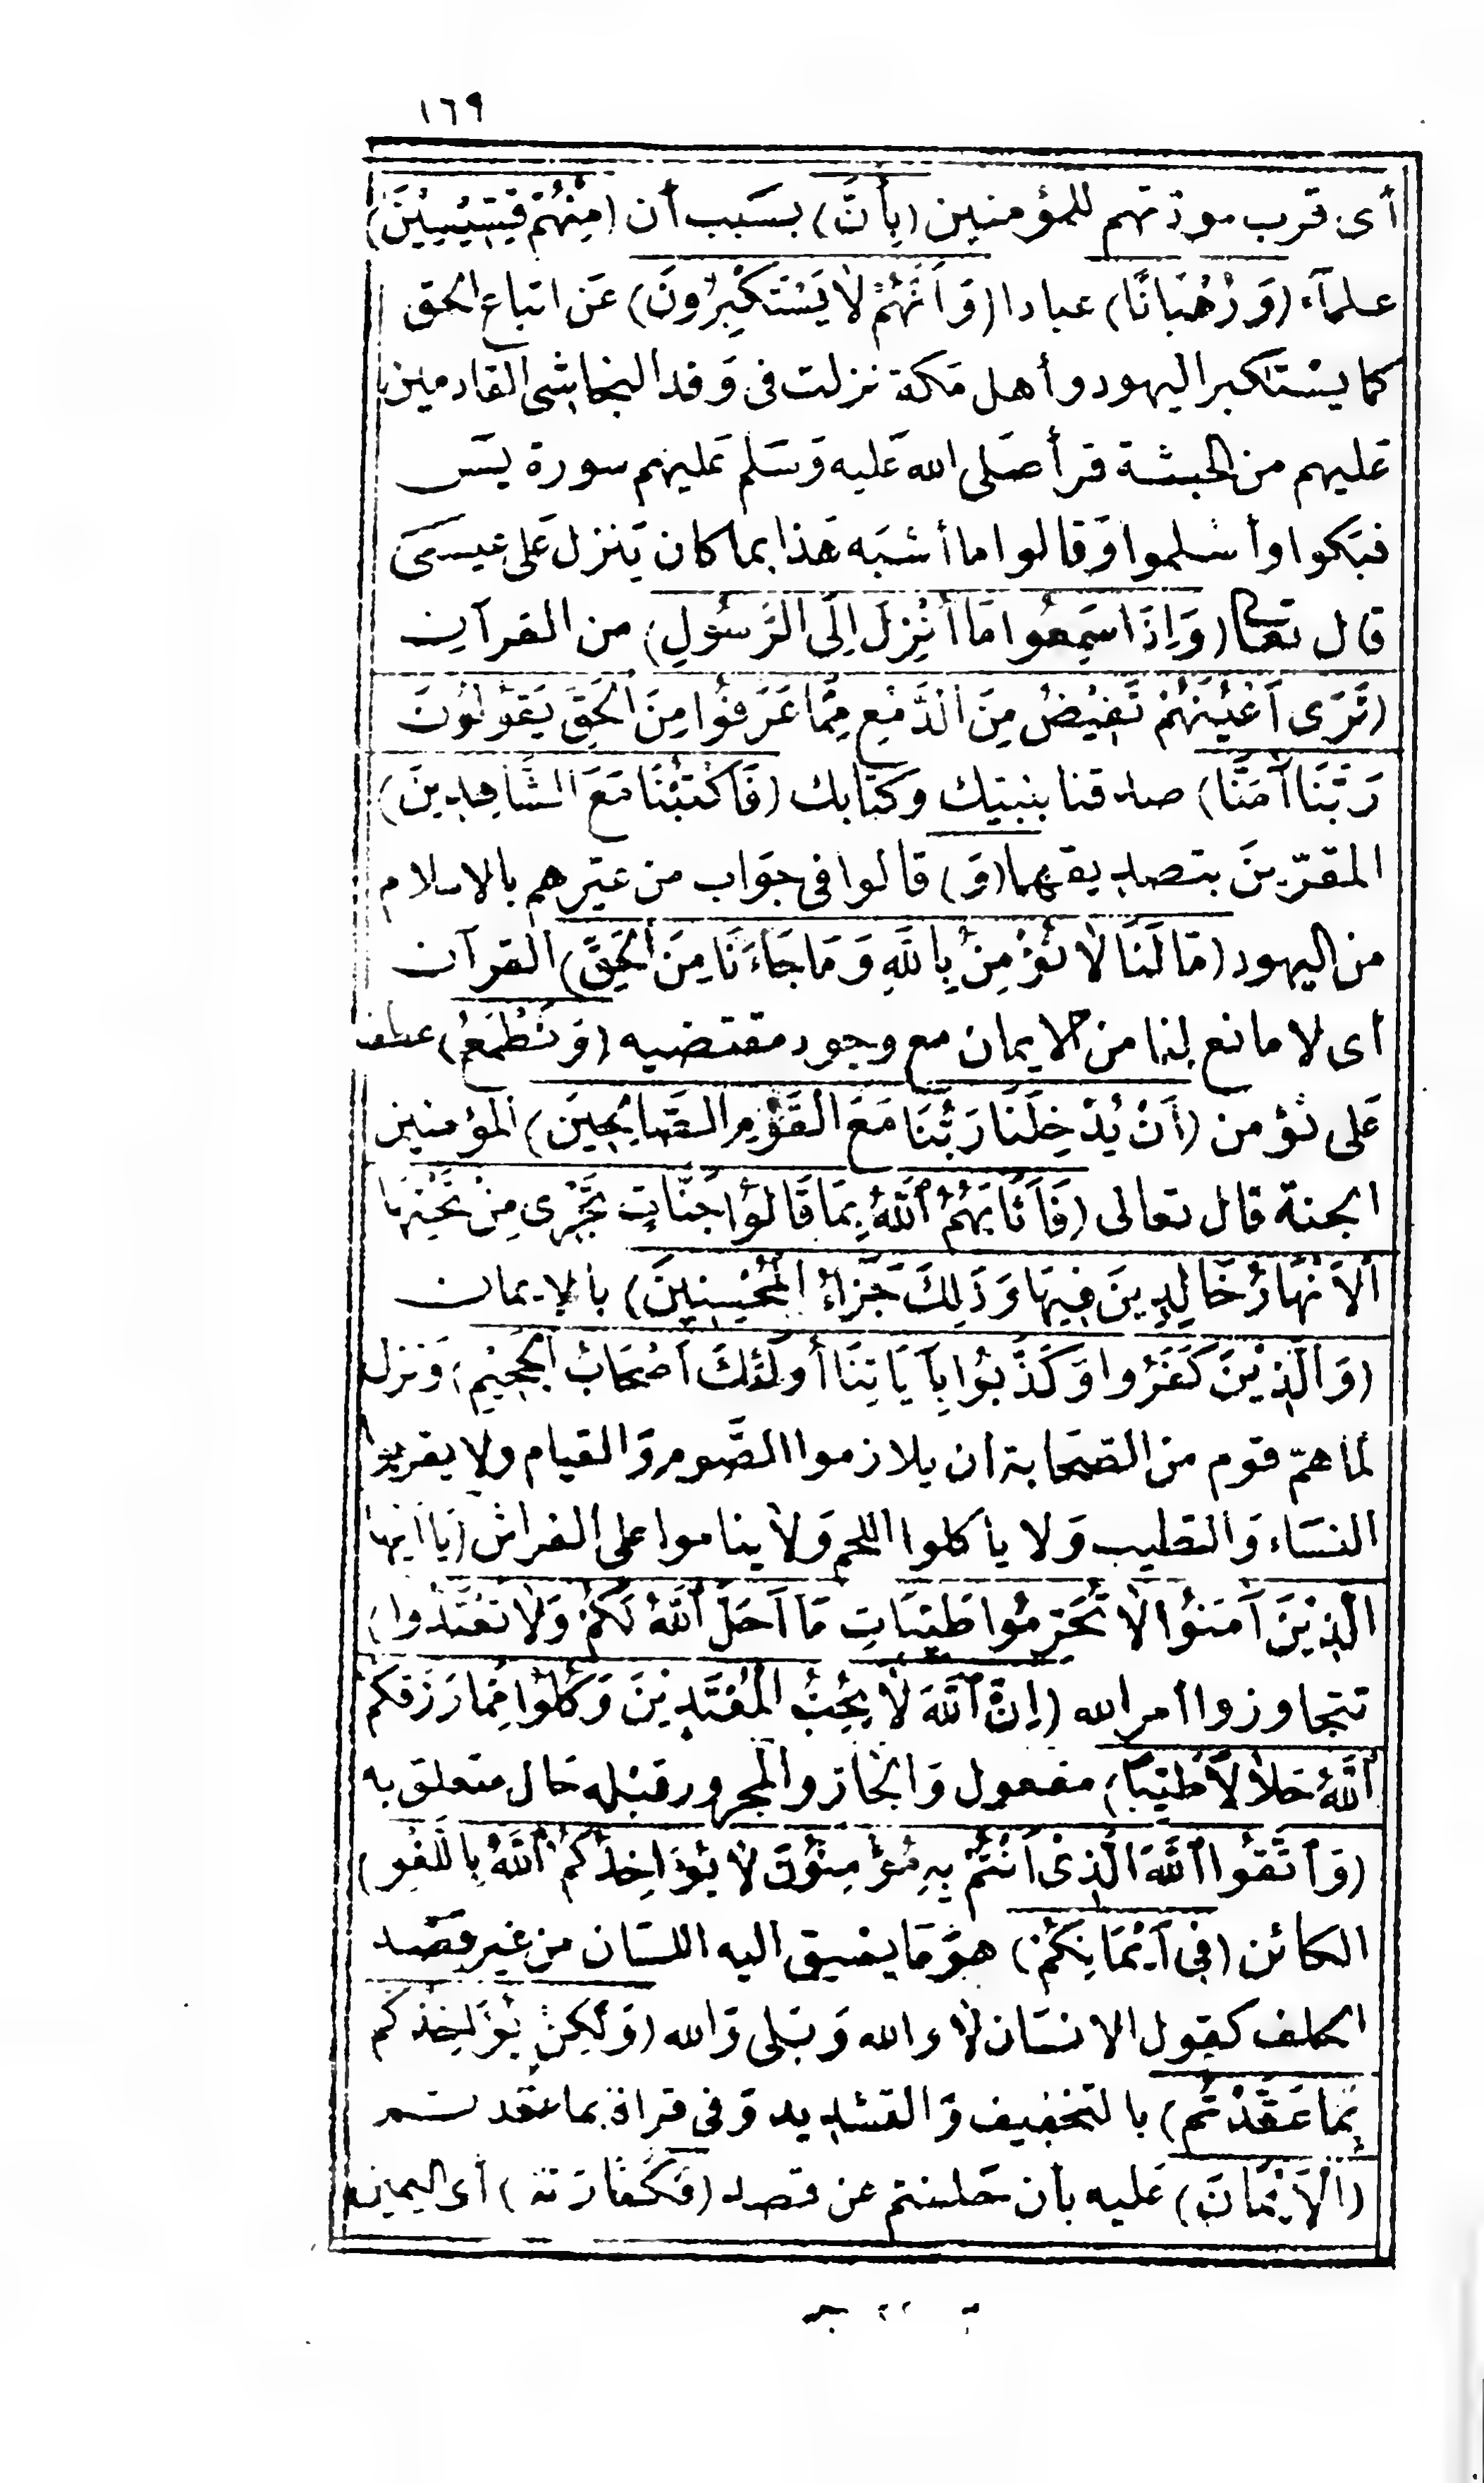 ١٦٩
أى قرب مودتهم للمؤمنين (بِأَنَّ) بسَبب أن (مِنْهُمْ قِسِّيْسِيْنَ)
علمآء (وَرُهْبَانًا) عبادا (وَأَنَّهُمْ لَا يَسْتَكْبِرُونَ) عَن اتباع الحق
كما يسْتَكبر اليهود وأهل مَكة نزلت فى وَفد النجاشى القادمين
عَليهم من الحبشة قرأ صَلى الله عَليه وَسَلم عَليهم سورة يسَ
فبَكوا وأسْلموا وَقالوا ما أشبَه هَذا بما كان يَنزل عَلى عيسىَ
قال تعالى (وَإِذَا سَمِعُوا مَا أُنْزِلَ إِلَى الرَّسُوْلِ) من القرآن
(تَرَى أَعْيُنَهُمْ تَفِيْضُ مِنَ الدَّمْعِ مِمَّا عَرَفُوْا مِنَ الْحَقِّ يَقُوْلُوْنَ
رَبَّنَا آمَنَّا) صدقنا بنبيك وَكتابك (فَاكْتُبْنَا مَعَ الشَّاهِدِينَ)
المقرّينَ بتصديقهما (وَ) قالوا فى جوَاب من عيّرهم بالاسلام
من اليهود (مَا لَنَا لَا نُؤْمِنُ بِاللَّهِ وَمَا جَاءَنَا مِنَ الْحَقِّ) القرآن
أى لا مانع لنا من الايمان مع وجود مقتضيه (وَنَطْمَعُ) عطف
عَلى نؤمن (أَنْ يُدْخِلَنَا رَبُّنَا مَعَ الْقَوْمِ الصَّالِحِينَ) المؤمنين
الجنة قال تعالى (فَأَثَابَهُمُ اللَّهُ بِمَا قَالُوْا جَنَّاتٍ تَجْرِى مِنْ تَحْتِهَا
الْأَنْهَارُ خَالِدِينَ فِيهَا وَذَلِكَ جَزَاءُ الْمُحْسِنِينَ) بالايمان
(وَالَّذِيْنَ كَفَرُوا وَكَذَّبُوْا بِآيَاتِنَا أُولَئِكَ أَصْحَابُ الْجَحِيْمِ) وَنزل
لما همّ قوم من الصَحَابة ان يلازموا الصَّوم وَالقيام ولا يقربوا
النسَاء وَالطيب وَلا يأكلوا اللحم وَلا يناموا على الفراش (يَا أَيُّهَا
الَّذِيْنَ آمَنُوْا لَا تُحَرِّمُوا طَيِّبَاتِ مَا أَحَلَّ اللَّهُ لَكُمْ وَلَا تَعْتَدُوا)
تتجاوزوا أمر الله (إِنَّ اللَّهَ لَا يُحِبُّ الْمُعْتَدِيْنَ وَكُلُوْا مِمَّا رَزَقَكُمُ
اللَّهُ حَلَالًا طَيِّبًا) مفعول وَالجار والمجرور قبْله حَال متعلق به
(وَاتَّقُوا اللَّهَ الَّذِىْ أَنْتُمْ بِهِ مُؤْمِنُوْنَ لَا يُؤَاخِذُكُمُ اللَّهُ بِاللَّغْوِ)
الكائن (فِى أَيْمَانِكُمْ) هوَ مَا يسْبق اليه اللسَان من غير قصْد
الحلف كقول الانسَان لا والله وَبَلى وَالله (وَلَكِنْ يُؤَاخِذُكُمْ
بِمَا عَقَّدْتُّمُ) بالتخفيف وَالتشديد وَفى قراءة بما عاقدتم
(الْأَيْمَانَ) عَليه بأن حَلفتم عن قصد (فَكَفَّارَتُهُ) أى اليمين